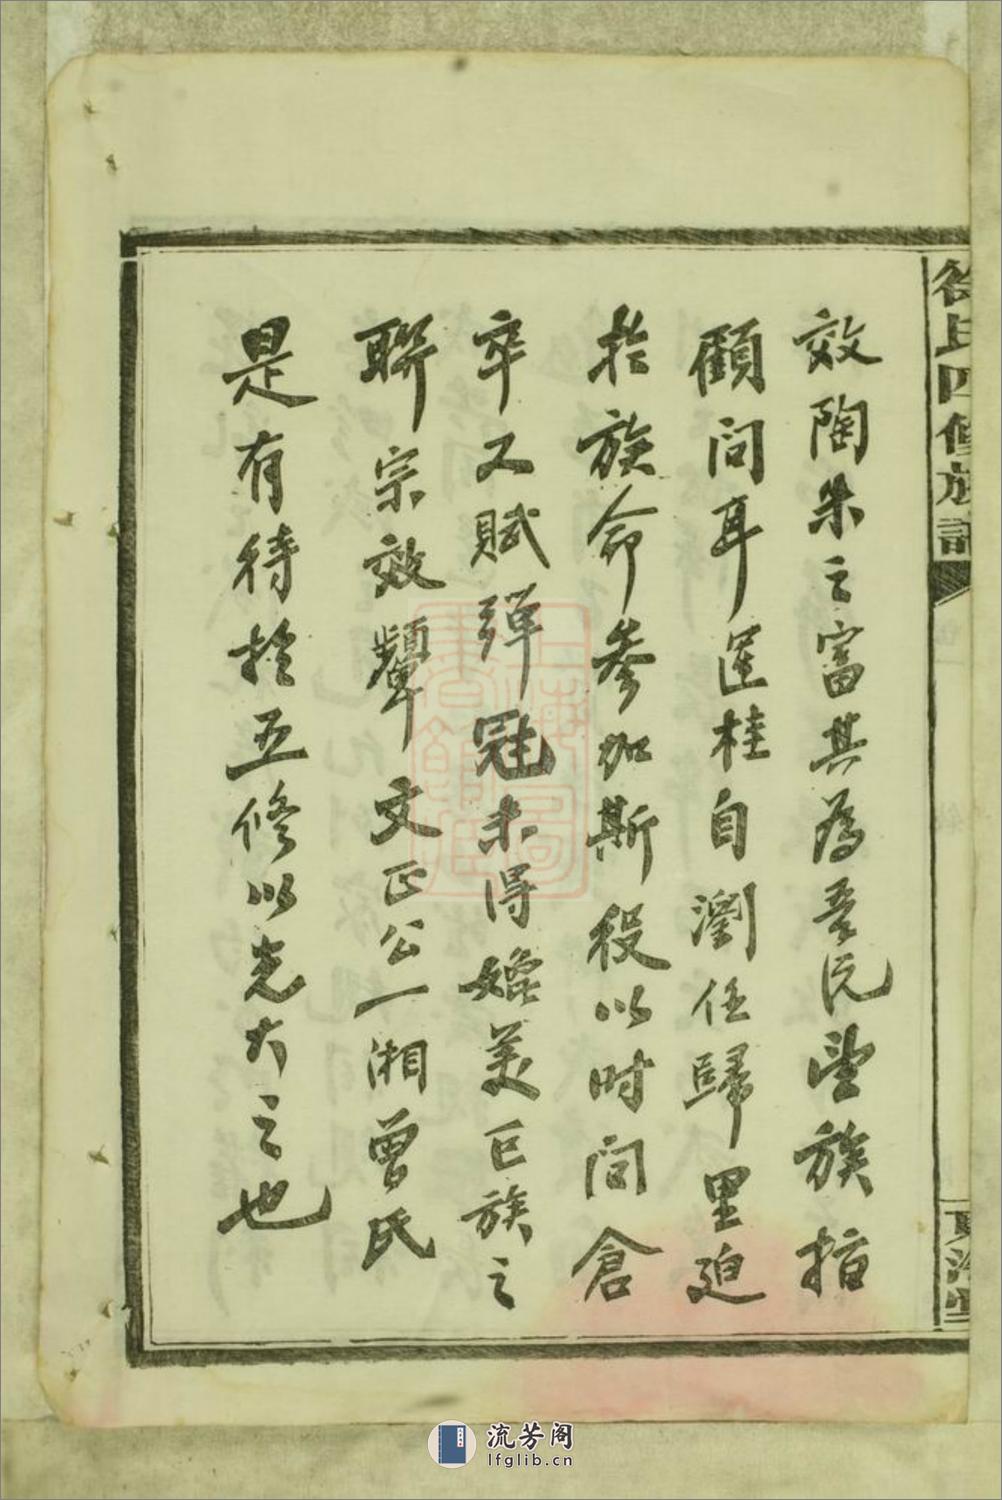 效陶朱之富其為吾沅望族指
顧問耳運桂自瀏任歸里迫
於族命參加斯役以时间倉
卒又賦彈冠未得始美巨族之
聯宗效顰文正公一湘曾氏
是有待於五修以光大之也
徐氏四修族譜
東海堂
流芳阁
lfglib.cn